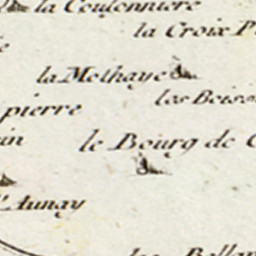 la Coulonniere
la Croix P
la Methaye
les Boiso
pierre
in
le Bourg de C
l'Aunay
les Bella